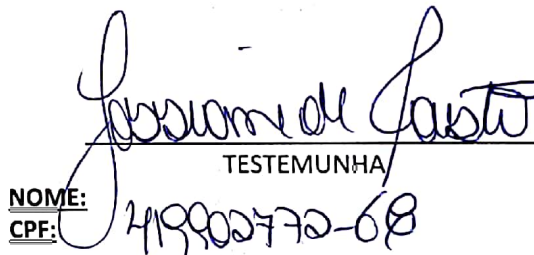 Jossiane de Castro
TESTEMUNHA
NOME:
CPF: 419902772-68